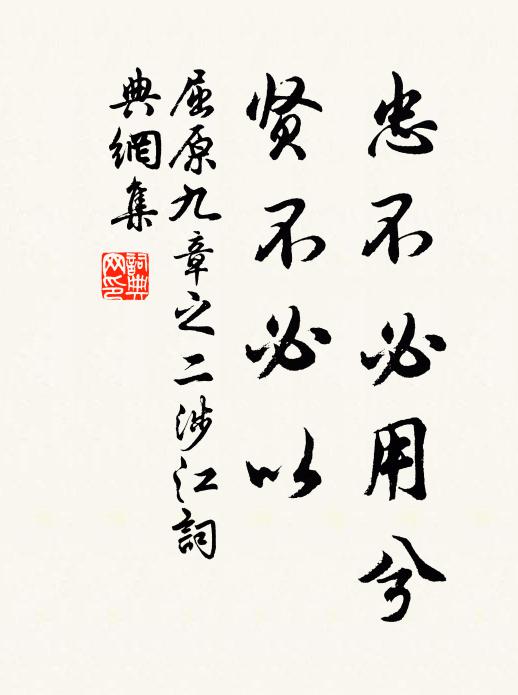 忠不必用兮
贤不必以
屈原九章之二涉江詞
典網集
詞典
网印